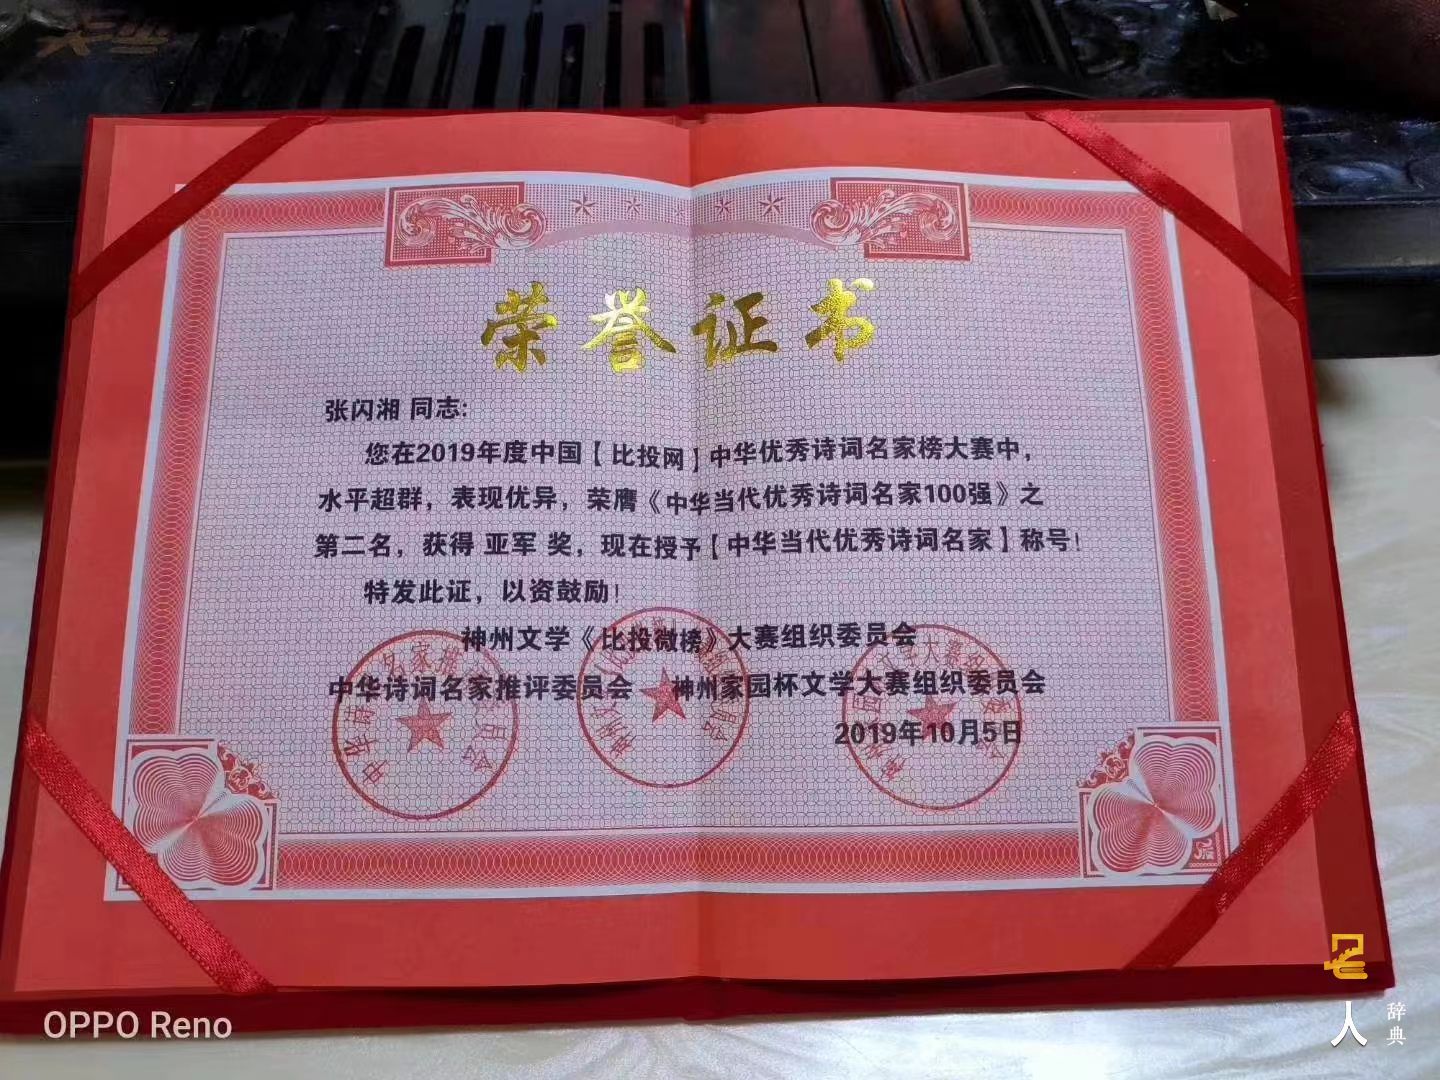 荣誉证书
张闪湘 同志:
您在2019年度中国【比投网】中华优秀诗词名家榜大赛中，
水平超群，表现优异，荣膺《中华当代优秀诗词名家100强》之
第二名，获得 亚军 奖，现在授予【中华当代优秀诗词名家】称号！
特发此证，以资鼓励！
神州文学《比投微榜》大赛组织委员会
中华诗词名家推评委员会 神州家园杯文学大赛组织委员会
2019年10月5日
OPPO Reno
名人
辞典